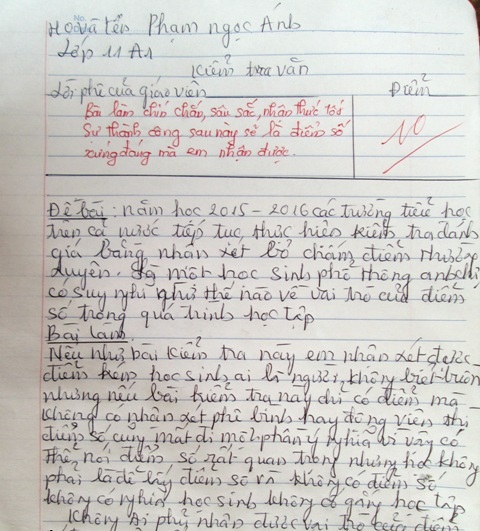 Họ và tên Phạm ngọc Ánh
Lớp 11 A1
Kiểm tra văn
Lời phê của giáo viên
Điểm
Bài làm chín chắn, sâu sắc, nhận thức tốt
Sự thành công sau này sẽ là điểm số
xứng đáng mà em nhận được.
10
Đề bài: năm học 2015-2016 các trường tiểu học
trên cả nước tiếp tục thực hiện kiểm tra đánh
giá bằng nhận xét bỏ chấm điểm thường
xuyên. Là một học sinh phổ thông anh chị
có suy nghĩ như thế nào về vai trò của điểm
số trong quá trình học tập
Bài làm
Nếu như bài kiểm tra này em nhận xét được
điểm kém học sinh ai là người không biết buồn
nhưng nếu bài kiểm tra này chỉ có điểm mà
không có nhận xét phê bình hay động viên thì
điểm số cũng mất đi một phần ý nghĩa vì vậy có
thể nói điểm số rất quan trọng nhưng học không
phải là để lấy điểm số và không có điểm số
không có nghĩa học sinh không cố gắng học tập
Không ai phủ nhận được vai trò của điểm